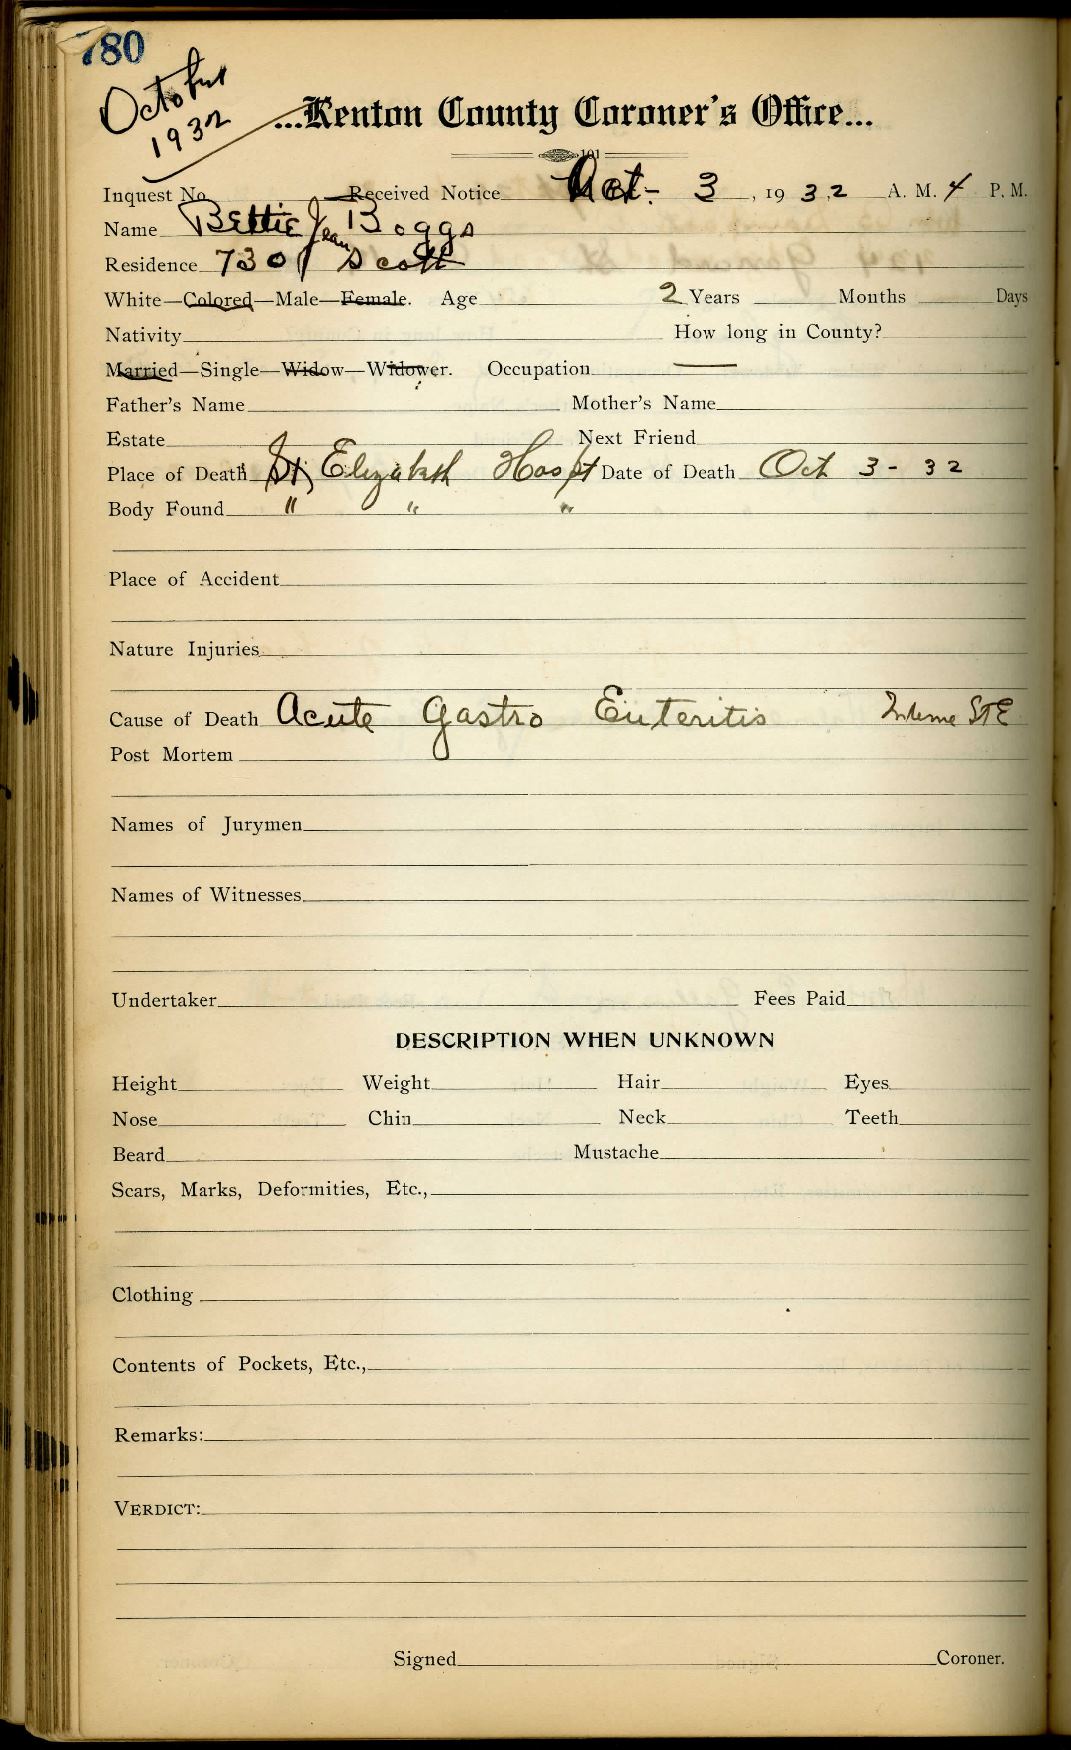 780
October
1932
...Kenton County Coroner's Office...
101
Inquest No. Received Notice Oct- 3, 1932 A. M. 4 P. M.
Name Bettie Jean Boggs
Residence 730 Scott
White—Colored—Male—Female. Age 2 Years Months Days
Nativity How long in County?
Married—Single—Widow—Widower. Occupation —
Father's Name Mother's Name
Estate Next Friend
Place of Death St Elizabeth Hospt Date of Death Oct 3 - 32
Body Found " " "
Place of Accident
Nature Injuries
Cause of Death Acute Gastro Enteritis Interne St E
Post Mortem
Names of Jurymen
Names of Witnesses
Undertaker Fees Paid
DESCRIPTION WHEN UNKNOWN
Height Weight Hair Eyes
Nose Chin Neck Teeth
Beard Mustache
Scars, Marks, Deformities, Etc.,
Clothing
Contents of Pockets, Etc.,
Remarks:
VERDICT:
Signed Coroner.